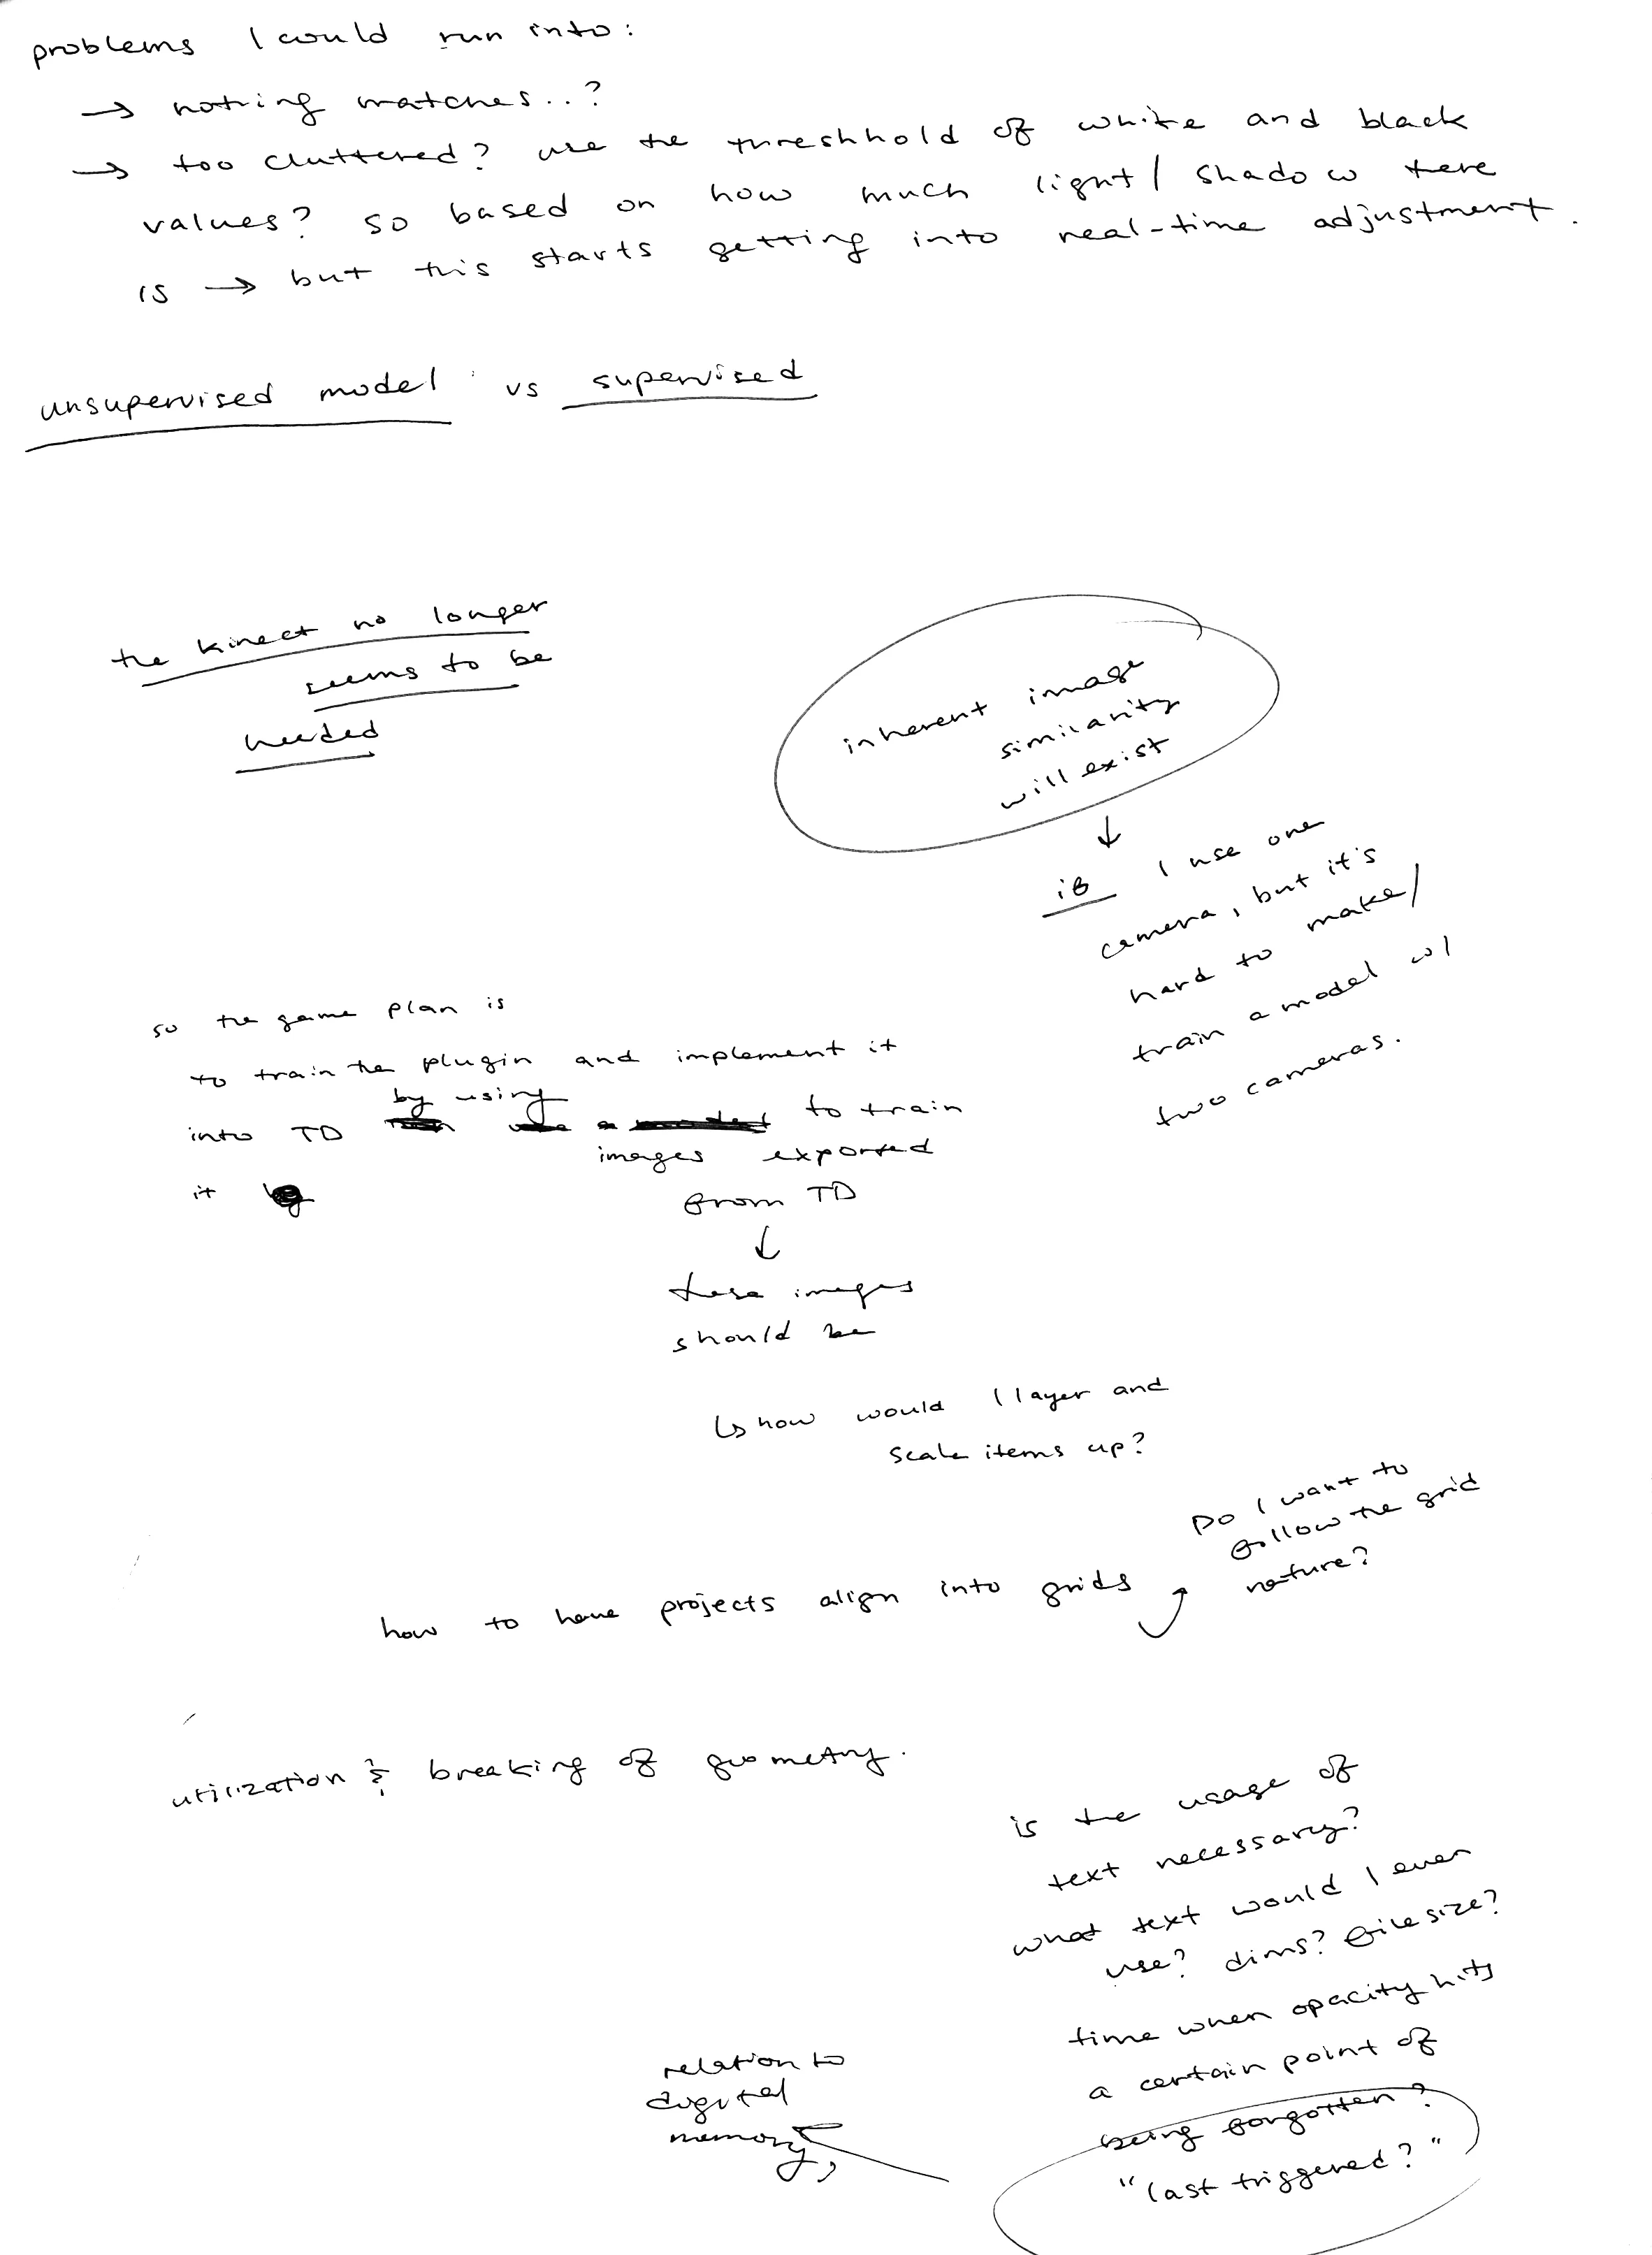 problems I could run into:
→ nothing matches..?
→ too cluttered? use the threshhold of white and black
values? so based on how much light/shadow there
is → but this starts getting into real-time adjustment.
unsupervised model vs supervised
the kinect no longer
seems to be
needed
inherent image
similarity
will exist
↓
if I use one
camera, but it's
hard to make/
train a model w/
two cameras.
so the game plan is
to train the plugin and implement it
into TD by using to train
images exported
it
from TD
↓
these images
should be
↳ how would I layer and
scale items up?
Do I want to
follow the grid
nature?
how to have projects align into grids
utilization & breaking of geometry.
is the usage of
text necessary?
what text would I even
use? dims? file size?
time when opacity hits
a certain point of
being forgotten?
"last triggered?"
relation to
digital
memory,